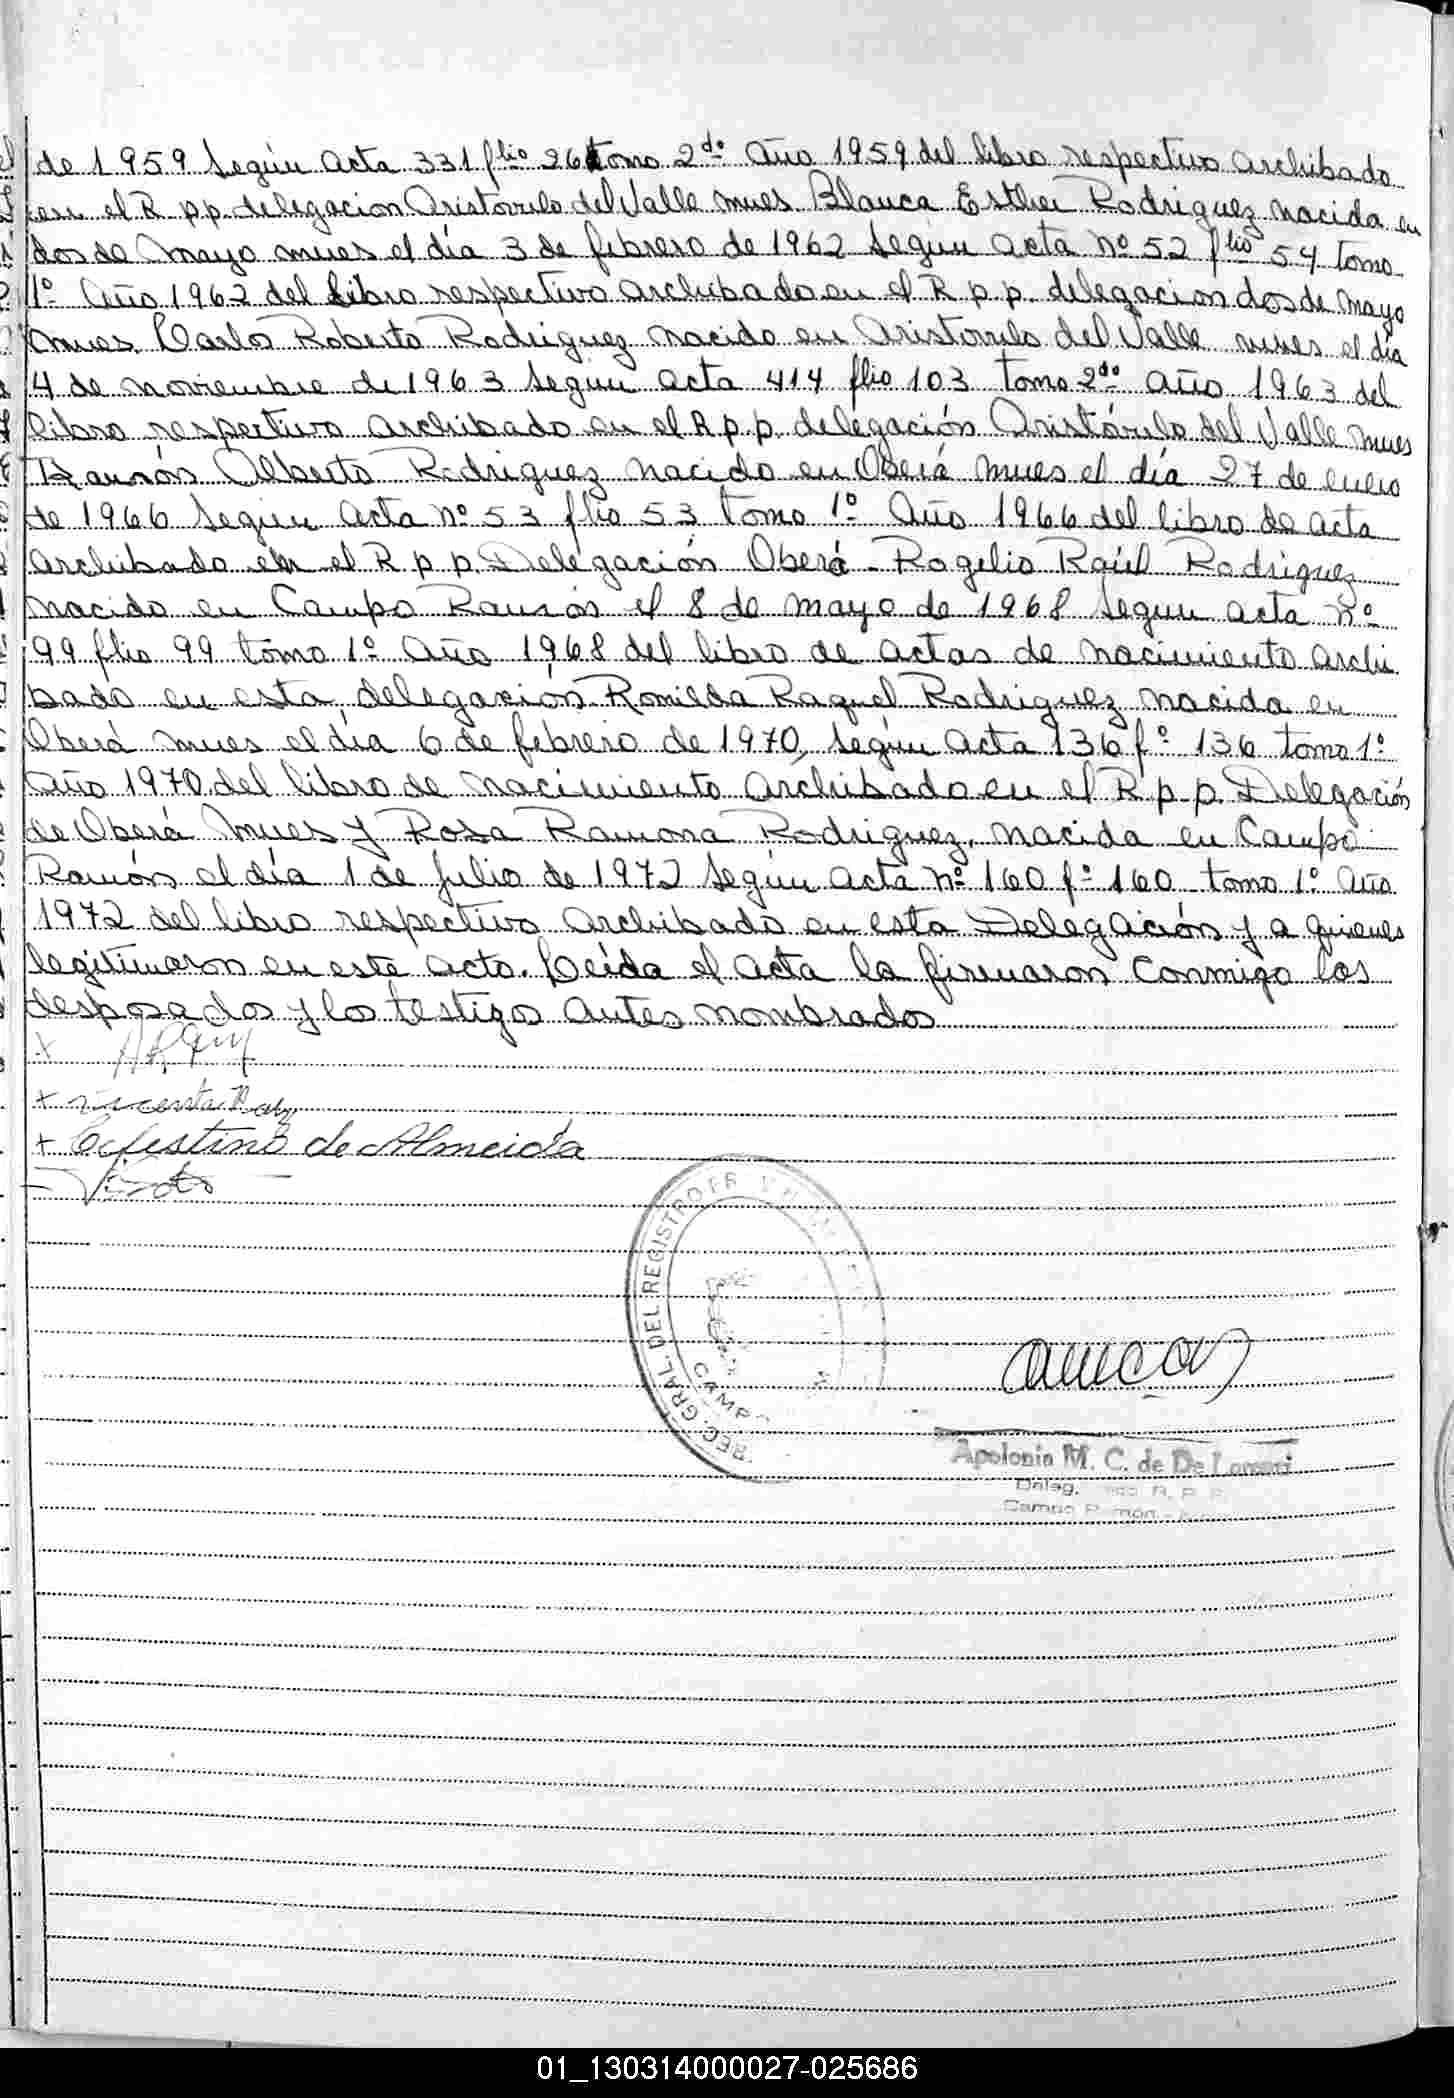 de 1959 según acta 331 flio 261 tomo 2do Año 1959 del libro respectivo archibado
en el R p p. delegacion Aristovulo del Valle mnes Blanca Esther Rodriguez nacida en
dos de Mayo mnes el día 3 de febrero de 1962 según acta nº 52 flio 54 tomo
1º Año 1962 del Libro respectivo archibado en el R p p. delegacion dos de mayo
mnes. Carlos Roberto Rodriguez nacido en Aristovulo del Valle mnes el día
4 de noviembre de 1963 según acta 414 flio 103 tomo 2do Año 1963 del
libro respectivo archibado en el R p p. delegación Aristóvulo del Valle mnes
Ramón Alberto Rodriguez nacido en Oberá mnes el día 27 de enero
de 1966 según acta nº 53 flio 53 tomo 1º Año 1966 del libro de acta
archibado en el R p p. Delegación Oberá - Rogelio Raúl Rodriguez
nacido en Campo Ramón el 8 de mayo de 1968 según acta nº
99 flio 99 tomo 1º Año 1968 del libro de actas de nacimiento archi
bado en esta delegación Romilda Raquel Rodriguez nacida en
Oberá mnes el día 6 de febrero de 1970, según acta 136 fº 136 tomo 1º
Año 1970 del libro de nacimiento archibado en el R p. p. Delegación
de Oberá mnes y Rosa Ramona Rodriguez, nacida en Campo
Ramón el día 1 de julio de 1972 según acta nº 160 fº 160 tomo 1º Año
1972 del libro respectivo archibado en esta Delegación y a quienes
legitimaron en este acto. Leída el acta la firmaron conmigo los
desposados y los testigos antes nombrados
x
x
x Celestino de Almeida
REC. GRAL. DEL REGISTRO
CAMPO
Apolonia M. C. de De Lorenzi
Deleg. R. P. P.
Campo Ramón
01_130314000027-025686